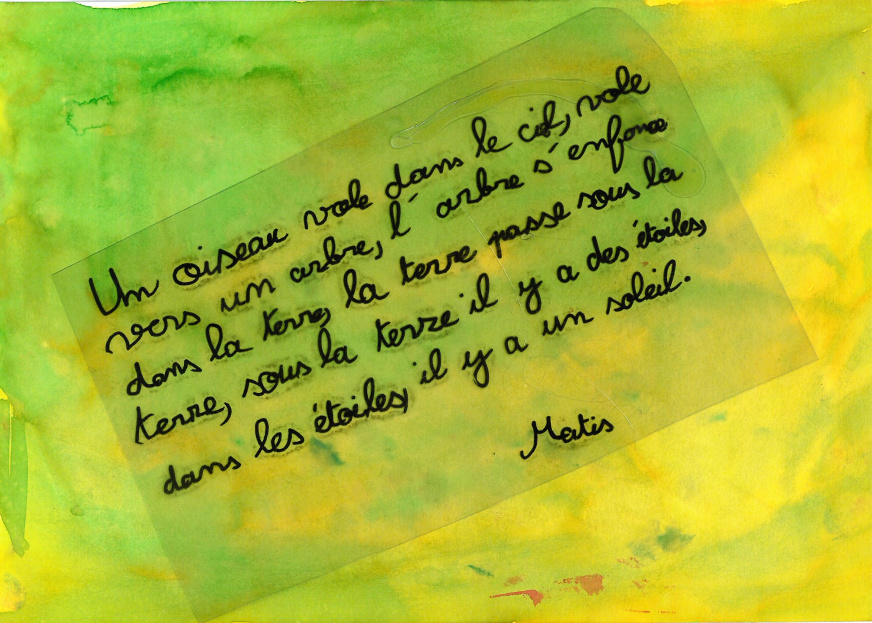 Un oiseau vole dans le ciel, vole
vers un arbre, l'arbre s'enfonce
dans la terre, la terre passe sous la
terre, sous la terre il y a des étoiles,
dans les étoiles, il y a un soleil.
Matis